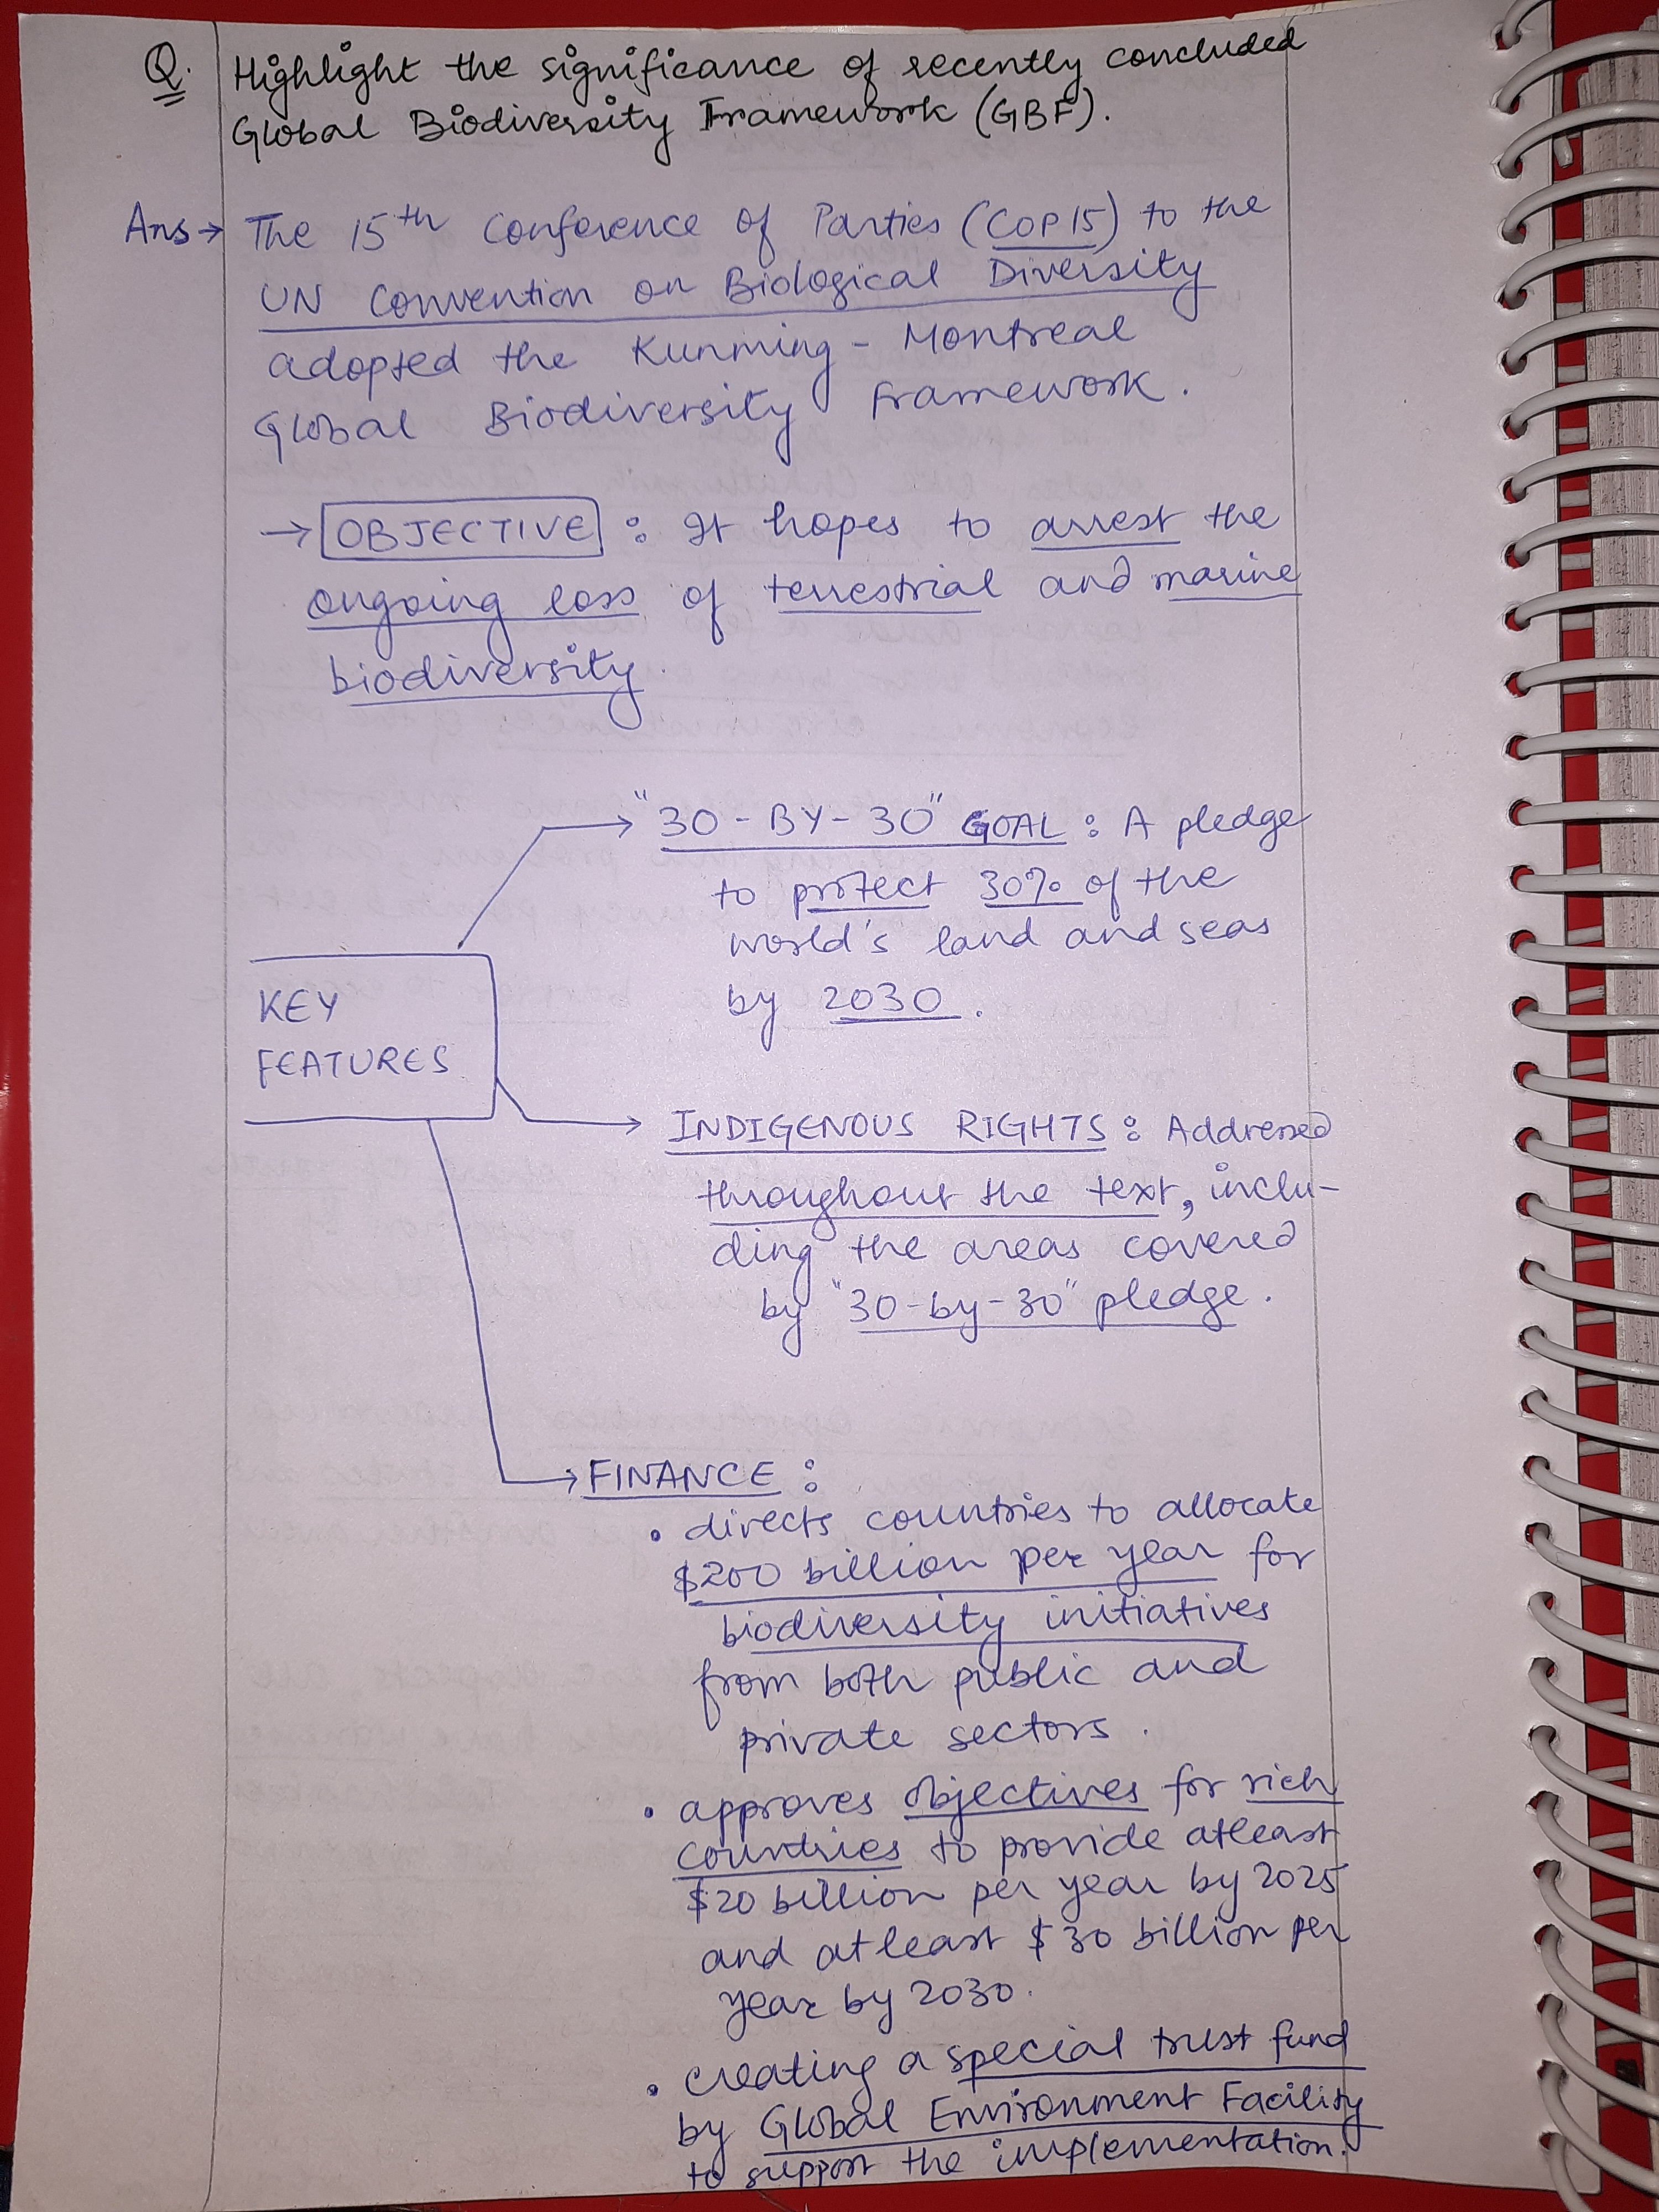 Q. Highlight the significance of recently concluded
Global Biodiversity Framework (GBF).
Ans → The 15th Conference of Parties (COP15) to the
UN Convention on Biological Diversity
adopted the Kunming - Montreal
Global Biodiversity Framework.
→ OBJECTIVE : It hopes to arrest the
ongoing loss of terrestrial and marine
biodiversity.
"30-BY-30" GOAL : A pledge
to protect 30% of the
world's land and seas
by 2030.
KEY
FEATURES
INDIGENOUS RIGHTS : Addressed
throughout the text, inclu-
ding the areas covered
by "30-by-30" pledge.
FINANCE :
• directs countries to allocate
$200 billion per year for
biodiversity initiatives
from both public and
private sectors.
• approves objectives for rich
countries to provide atleast
$20 billion per year by 2025
and atleast $30 billion per
year by 2030.
• creating a special trust fund
by Global Environment Facility
to support the implementation.